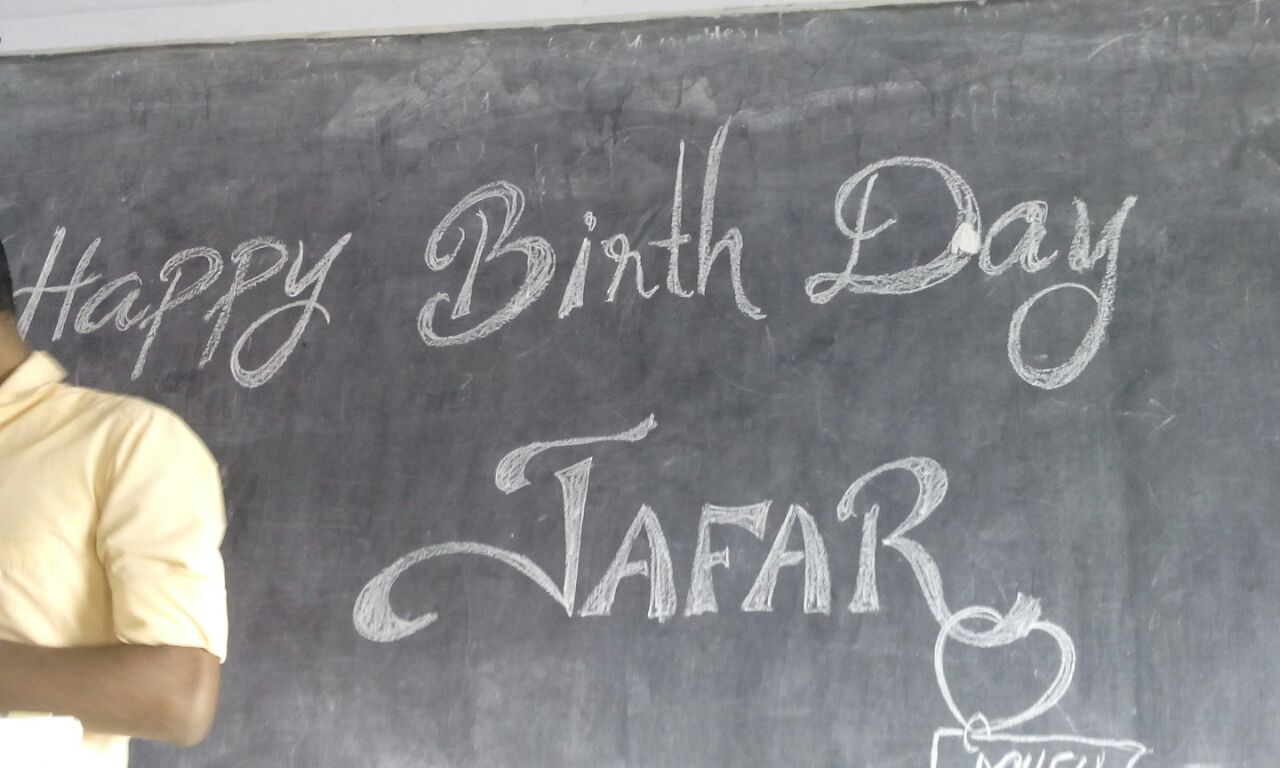 Happy Birth Day
JAFAR